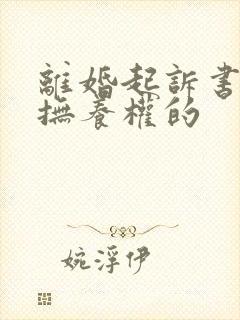 離婚起訴書
撫養權的
婉浮伊